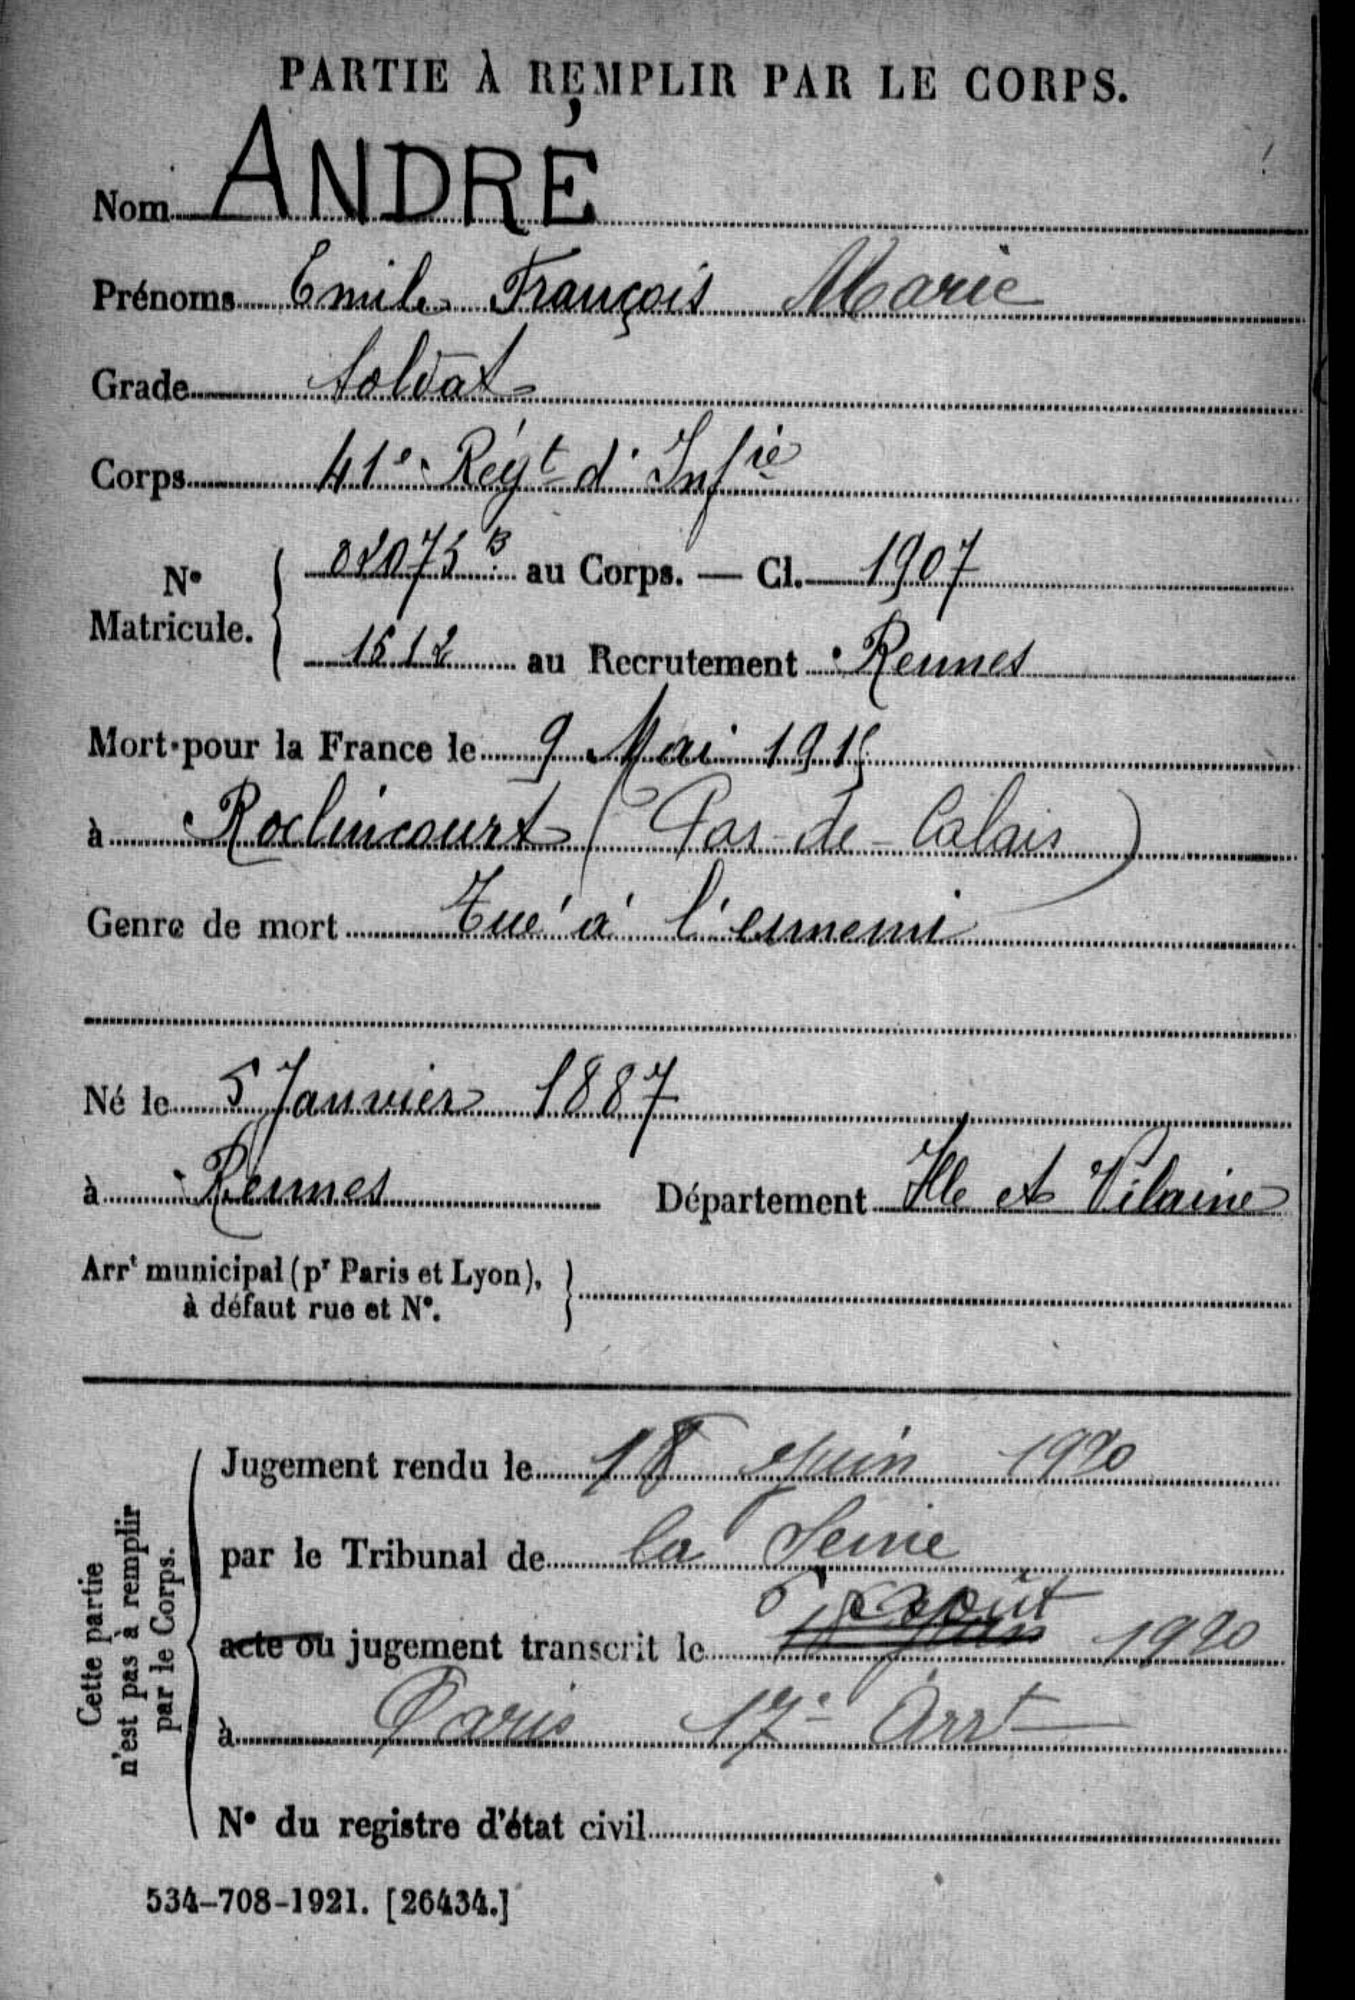 PARTIE À REMPLIR PAR LE CORPS.
Nom ANDRÉ
Prénoms Emile François Marie
Grade Soldat
Corps 41e Régt d'Infie
No Matricule. { 02075 B au Corps. — Cl. 1907
1512 au Recrutement Rennes
Mort pour la France le 9 Mai 1915
à Roclincourt (Pas-de-Calais)
Genre de mort Tué à l'ennemi
Né le 5 Janvier 1887
à Rennes Département Ille et Vilaine
Arrt municipal (pr Paris et Lyon), }
à défaut rue et No.
Cette partie
n'est pas à remplir
par le Corps.
Jugement rendu le 18 Juin 1920
par le Tribunal de la Seine
5 Août
acte ou jugement transcrit le 18 Juin 1920
à Paris 17e Arrt
No du registre d'état civil
534-708-1921. [26434.]